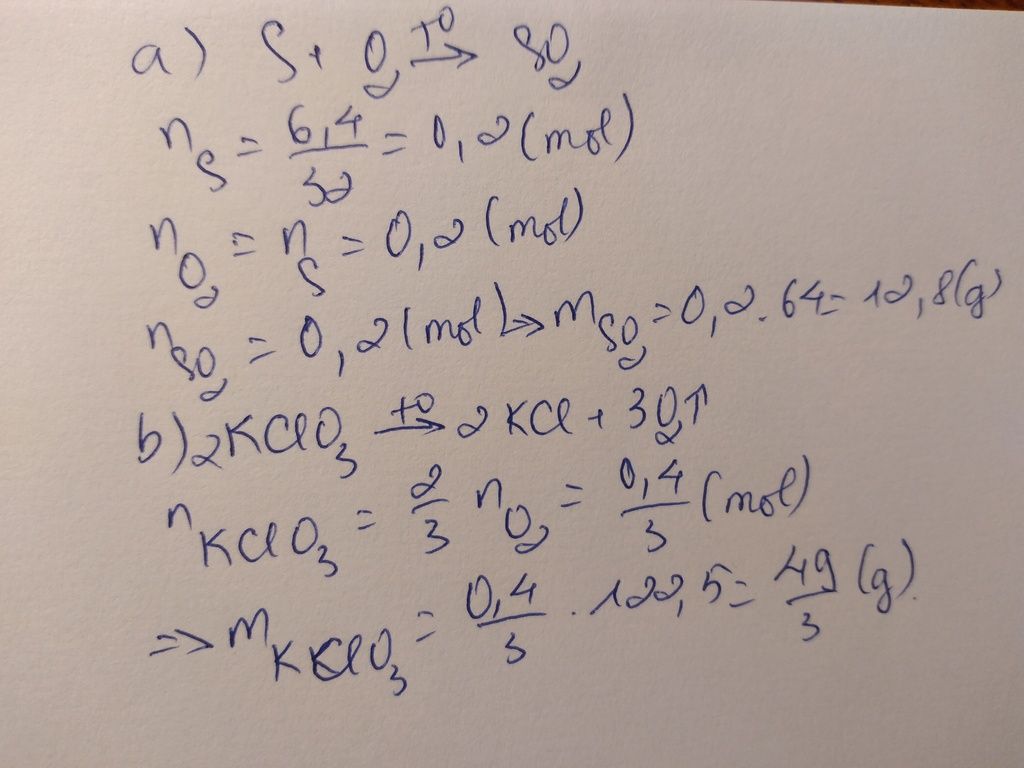 a) S + O₂ →(t⁰) SO₂
n_S = 6,4/32 = 0,2 (mol)
n_O₂ = n_S = 0,2 (mol)
n_SO₂ = 0,2 (mol) => m_SO₂ = 0,2 . 64 = 12,8 (g)
b) 2KClO₃ →(t⁰) 2KCl + 3O₂↑
n_KClO₃ = 2/3 n_O₂ = 0,4/3 (mol)
=> m_KKClO₃ = 0,4/3 . 122,5 = 49/3 (g).